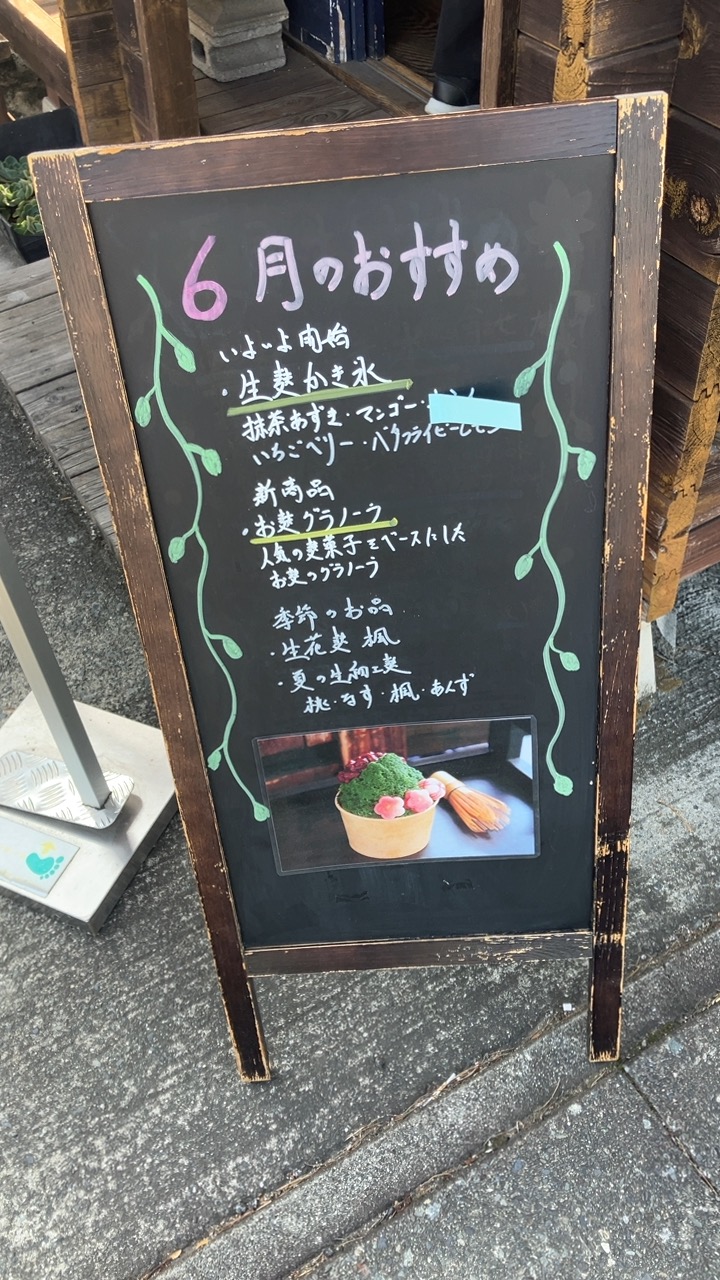 6月のおすすめ
いよいよ開始
・生麩かき氷
抹茶あずき・マンゴー・
いちごベリー・バタフライピーレモン
新商品
・お麩グラノーラ
人気の麩菓子をベースにした
お麩のグラノーラ
季節のお品
・生花麩 楓
・夏の生細工麩
桃・なす・楓・あんず